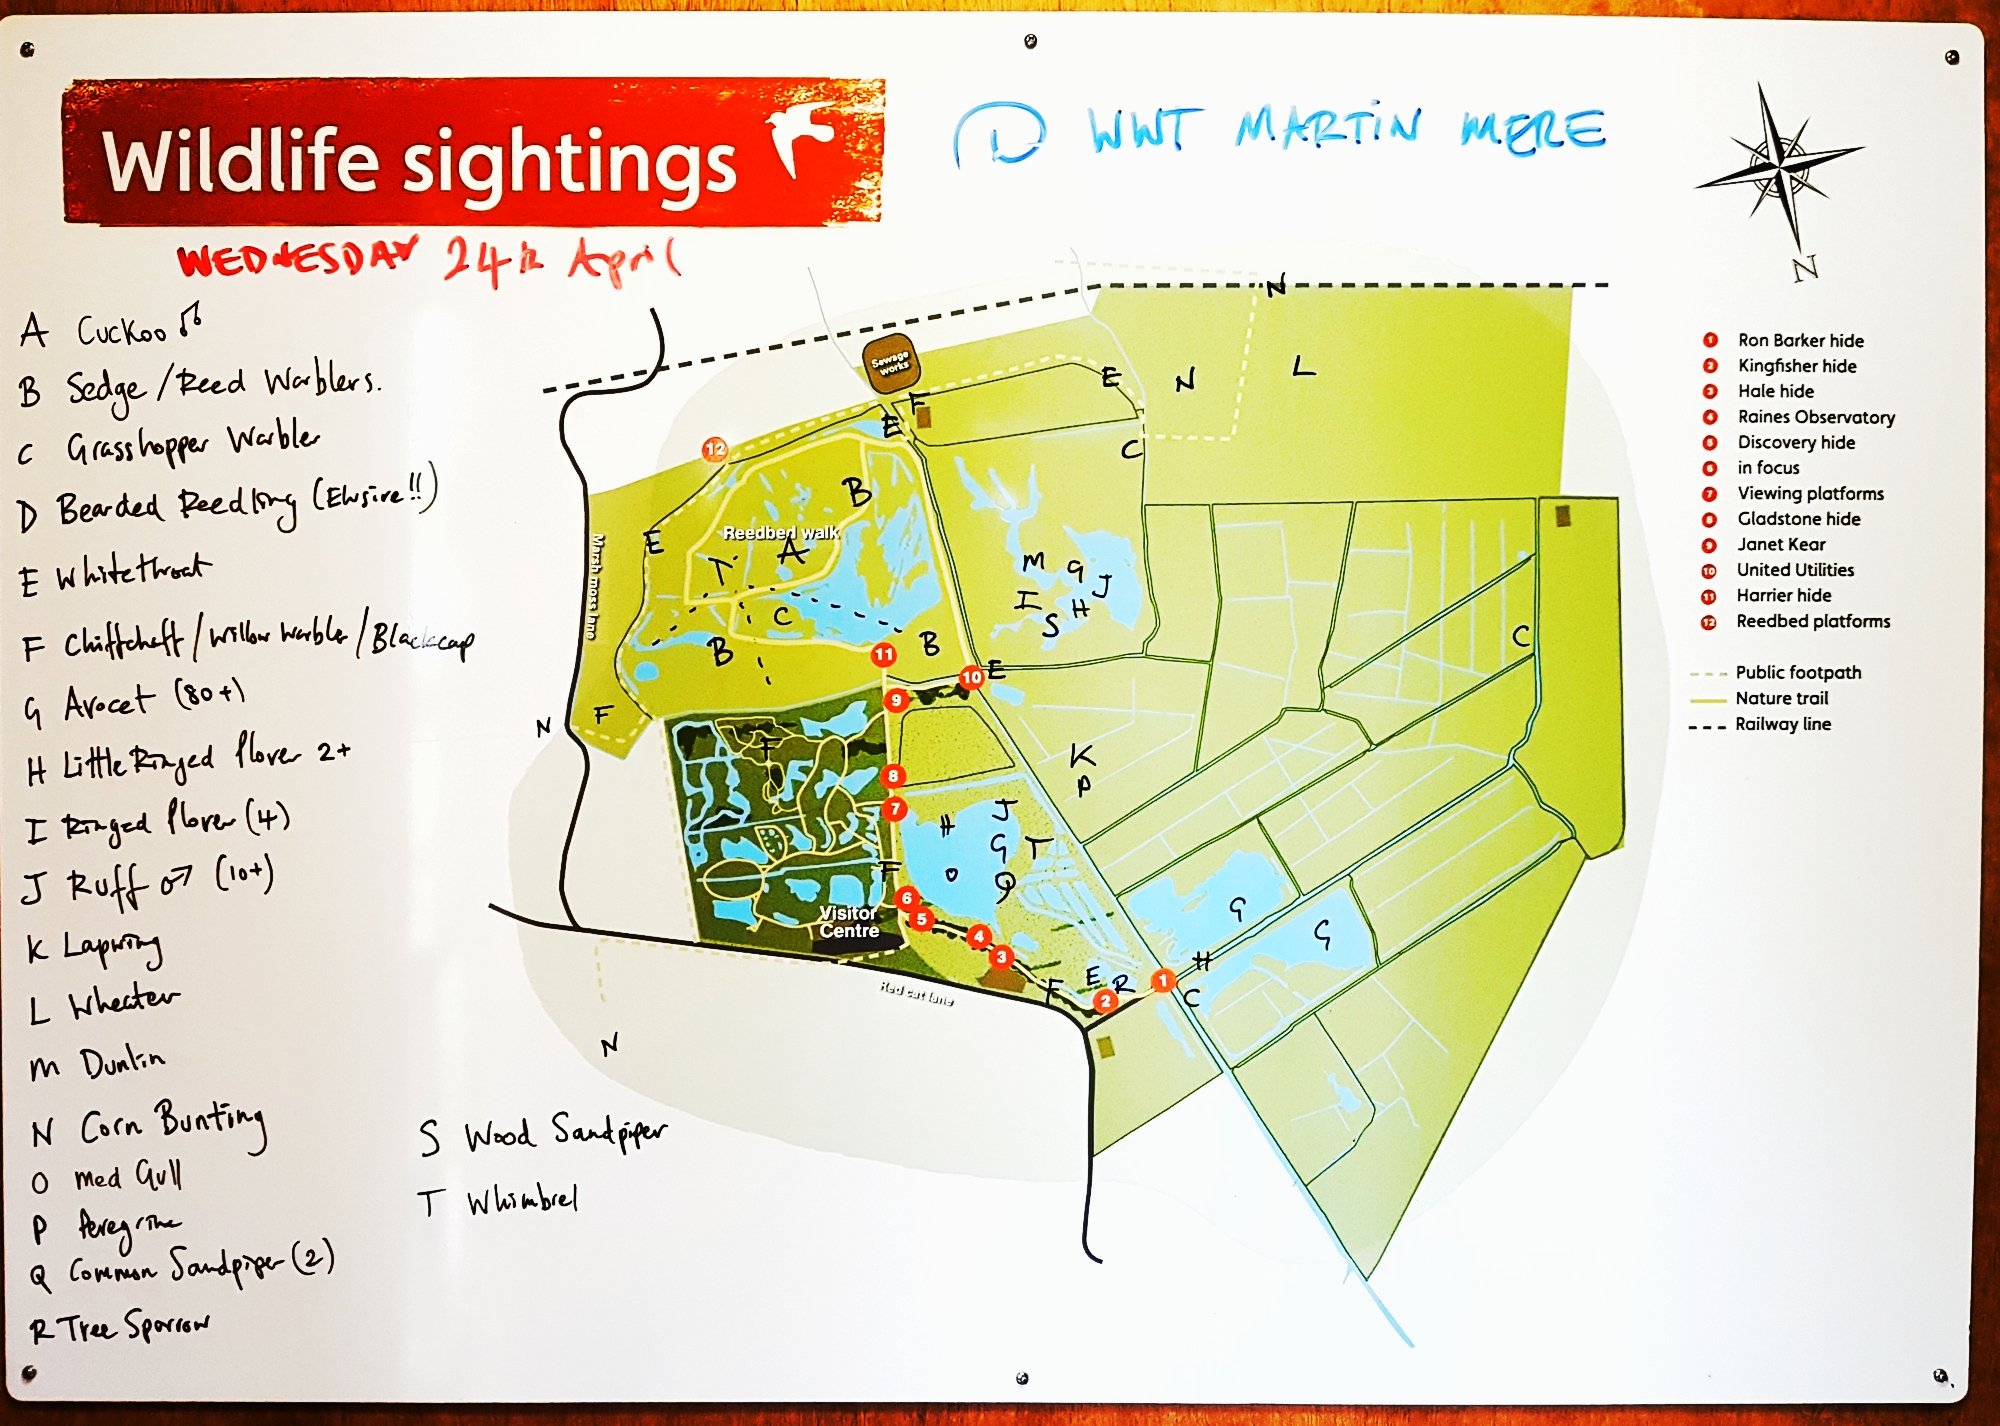 Wildlife sightings
D WWT MARTIN MERE
WEDNESDAY 24th April
N
A Cuckoo
B Sedge / Reed Warblers.
C Grasshopper Warbler
D Bearded Reedling (Elusive!!)
E Whitethroat
F Chiffchaff / Willow Warbler / Blackcap
G Avocet (80+)
H Little Ringed Plover 2+
I Ringed Plover (4)
J Ruff ♂ (10+)
K Lapwing
L Wheatear
M Dunlin
N Corn Bunting
O Med Gull
P Peregrine
Q Common Sandpiper (2)
R Tree Sparrow
S Wood Sandpiper
T Whimbrel
N
L
Sewage
works
E
N
F
E
C
12
B
Reedbed walk
E
A
T
M
G
J
I
H
S
C
Marsh moss lane
C
B
B
11
10
E
9
F
N
F
K
P
8
7
H
J
G
T
O
Q
F
6
5
Visitor
Centre
4
3
G
G
H
E
R
1
F
2
C
Red cat lane
N
1 Ron Barker hide
2 Kingfisher hide
3 Hale hide
4 Raines Observatory
5 Discovery hide
6 in focus
7 Viewing platforms
8 Gladstone hide
9 Janet Kear
10 United Utilities
11 Harrier hide
12 Reedbed platforms
Public footpath
Nature trail
Railway line